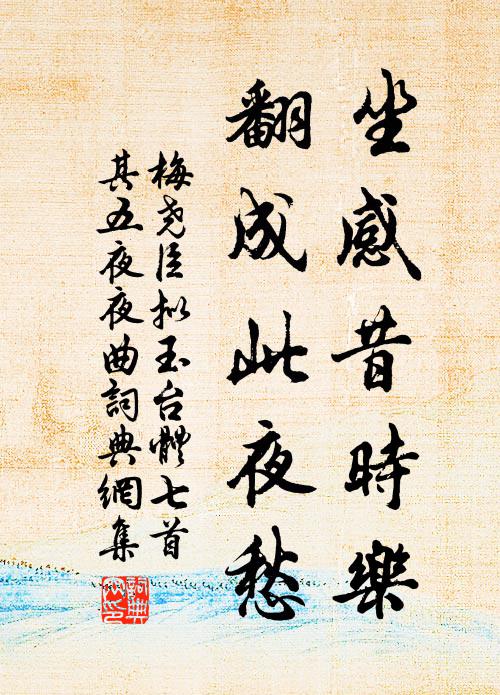 坐感昔時樂
翻成此夜愁
梅堯臣拟玉台體七首
其五夜夜曲詞典網集